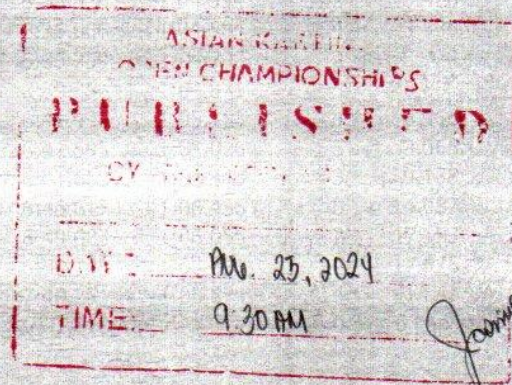 ASIAN KARTING
OPEN CHAMPIONSHIPS
PUBLISHED
BY
DATE:
AUG. 23, 2024
TIME: 9:30 AM